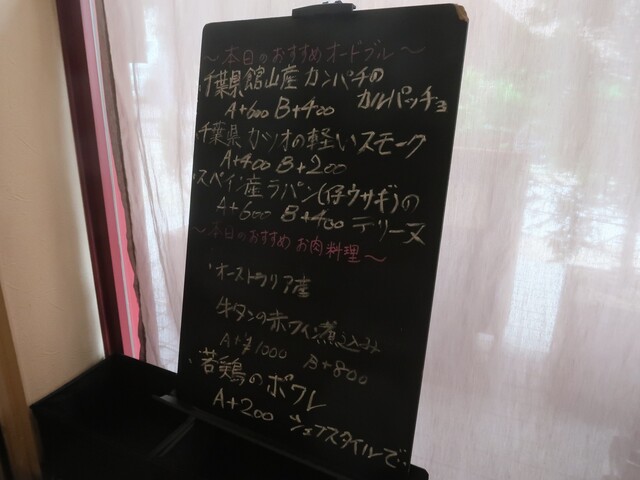 〜本日のおすすめオードブル〜
・千葉県館山産カンパチの
カルパッチョ
A+600 B+400
・千葉県カツオの軽いスモーク
A+400 B+200
・スペイン産ラパン(仔ウサギ)の
A+600 B+400 テリーヌ
〜本日のおすすめお肉料理〜
・オーストラリア産
牛タンの赤ワイン煮込み
A+¥1000 B+800
・若鶏のポワレ
A+200 シェフスタイルで